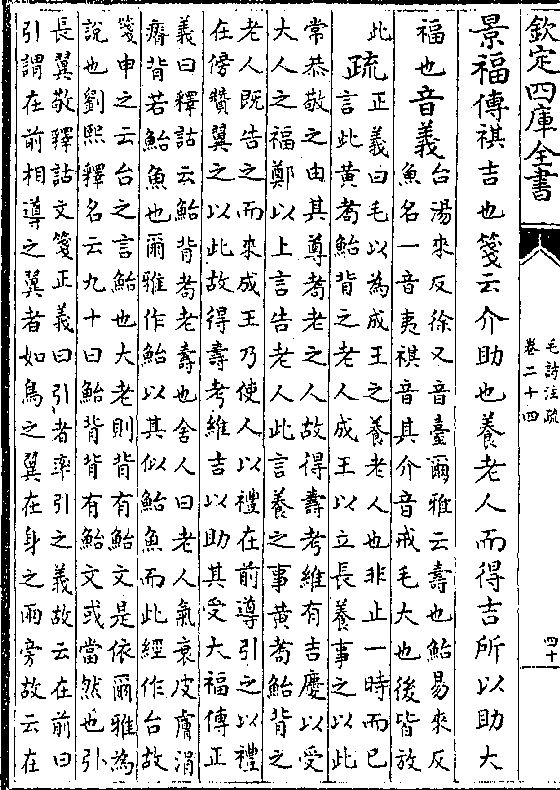 欽定四庫全書
毛詩注疏
卷二十四
四十
景福傳祺吉也箋云介助也養老人而得吉所以助大
福也音義台湯來反徐又音臺爾雅云壽也鮐易來反
魚名一音夷祺音其介音戒毛大也後皆放
此疏正義曰毛以為成王之養老人也非止一時而已
言此黃耉鮐背之老人成王以立長養事之以此
常恭敬之由其尊耉老之人故得壽考維有吉慶以受
大人之福鄭以上言告老人此言養之事黃耉鮐背之
老人既告之而來成王乃使人以禮在前導引之以禮
在傍贊翼之以此故得壽考維吉以助其受大福傳正
義曰釋詁云鮐背耉老壽也舍人曰老人氣衰皮膚涓
瘠背若鮐魚也爾雅作鮐以其似鮐魚而此經作台故
箋申之云台之言鮐也大老則背有鮐文是依爾雅為
說也劉熙釋名云九十曰鮐背背有鮐文或當然也引
長翼敬釋詁文箋正義曰引者率引之義故云在前曰
引謂在前相導之翼者如鳥之翼在身之兩旁故云在